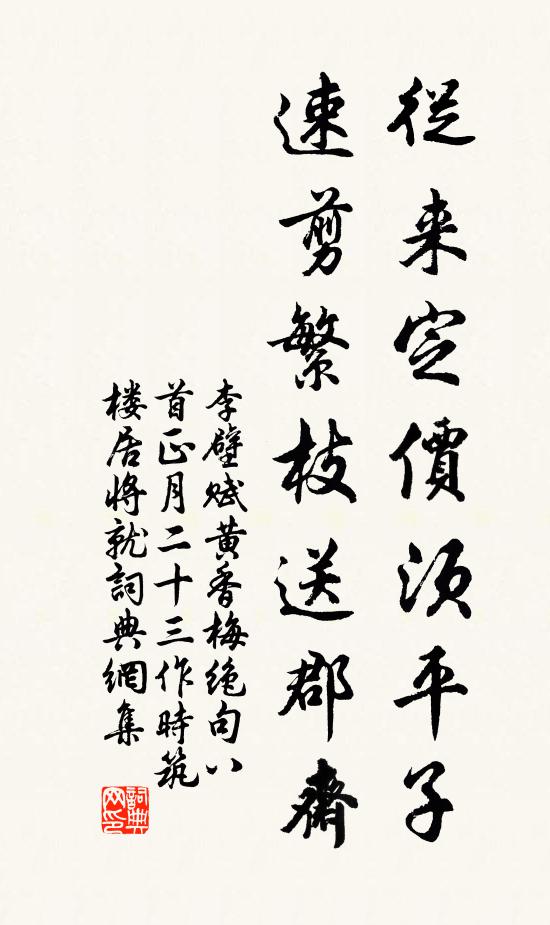 從来定價須平子
速剪繁枝送郡齋
李壁賦黄香梅絶句八
首正月二十三作時筑
楼居将就詞典網集
詞典網印